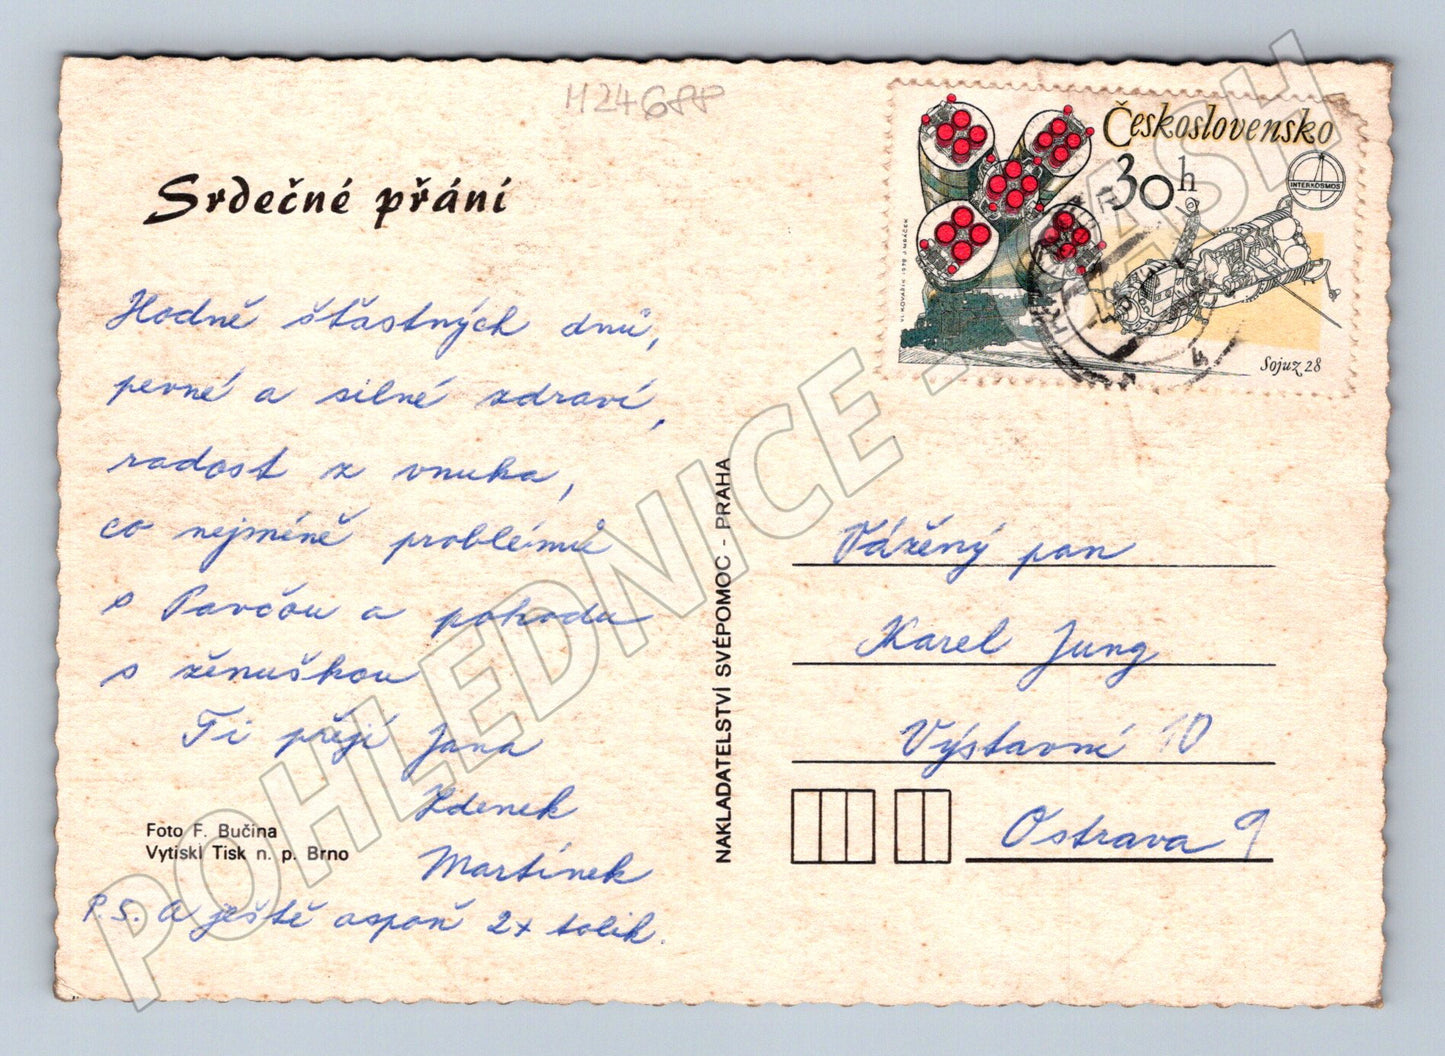 M24688
Srdečné přání
Hodně šťastných dnů,
pevné a silné zdraví,
radost z vnuka,
co nejméně problémů
s Pavčou a pohodu
s ženuškou
Ti přejí Jana
Zdenek
Martínek
P.S. A ještě aspoň 2x tolik.
Foto F. Bučina
Vytiskl Tisk n. p. Brno
NAKLADATELSTVÍ SVÉPOMOC - PRAHA
Československo
30h
INTERKOSMOS
Sojuz 28
VL. KOVÁŘÍK 1978 J. MRÁČEK
Vážený pan
Karel Jung
Výstavní 10
Ostrava 9
POHLEDNICE - CASH